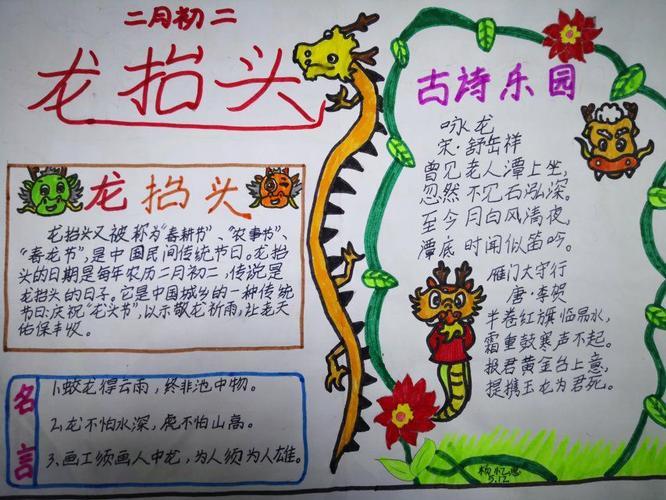 二月初二
龙抬头
龙抬头
龙抬头又被称为"春耕节"、"农事节"、
"春龙节",是中国民间传统节日。龙抬
头的日期是每年农历二月初二,传说是
龙抬头的日子。它是中国城乡的一种传统
节日.庆祝"龙头节",以示敬龙祈雨,让老天
佑保丰收。
名言
1.蛟龙得云雨,终非池中物。
2.龙不怕水深,虎不怕山高。
3.画工须画人中龙,为人须为人雄。
古诗乐园
咏龙
宋·舒岳祥
曾见老人潭上坐,
忽然不见石泓深。
至今月白风清夜,
潭底时闻似笛吟。
雁门太守行
唐·李贺
半卷红旗临易水,
霜重鼓寒声不起。
报君黄金台上意,
提携玉龙为君死。
5.12